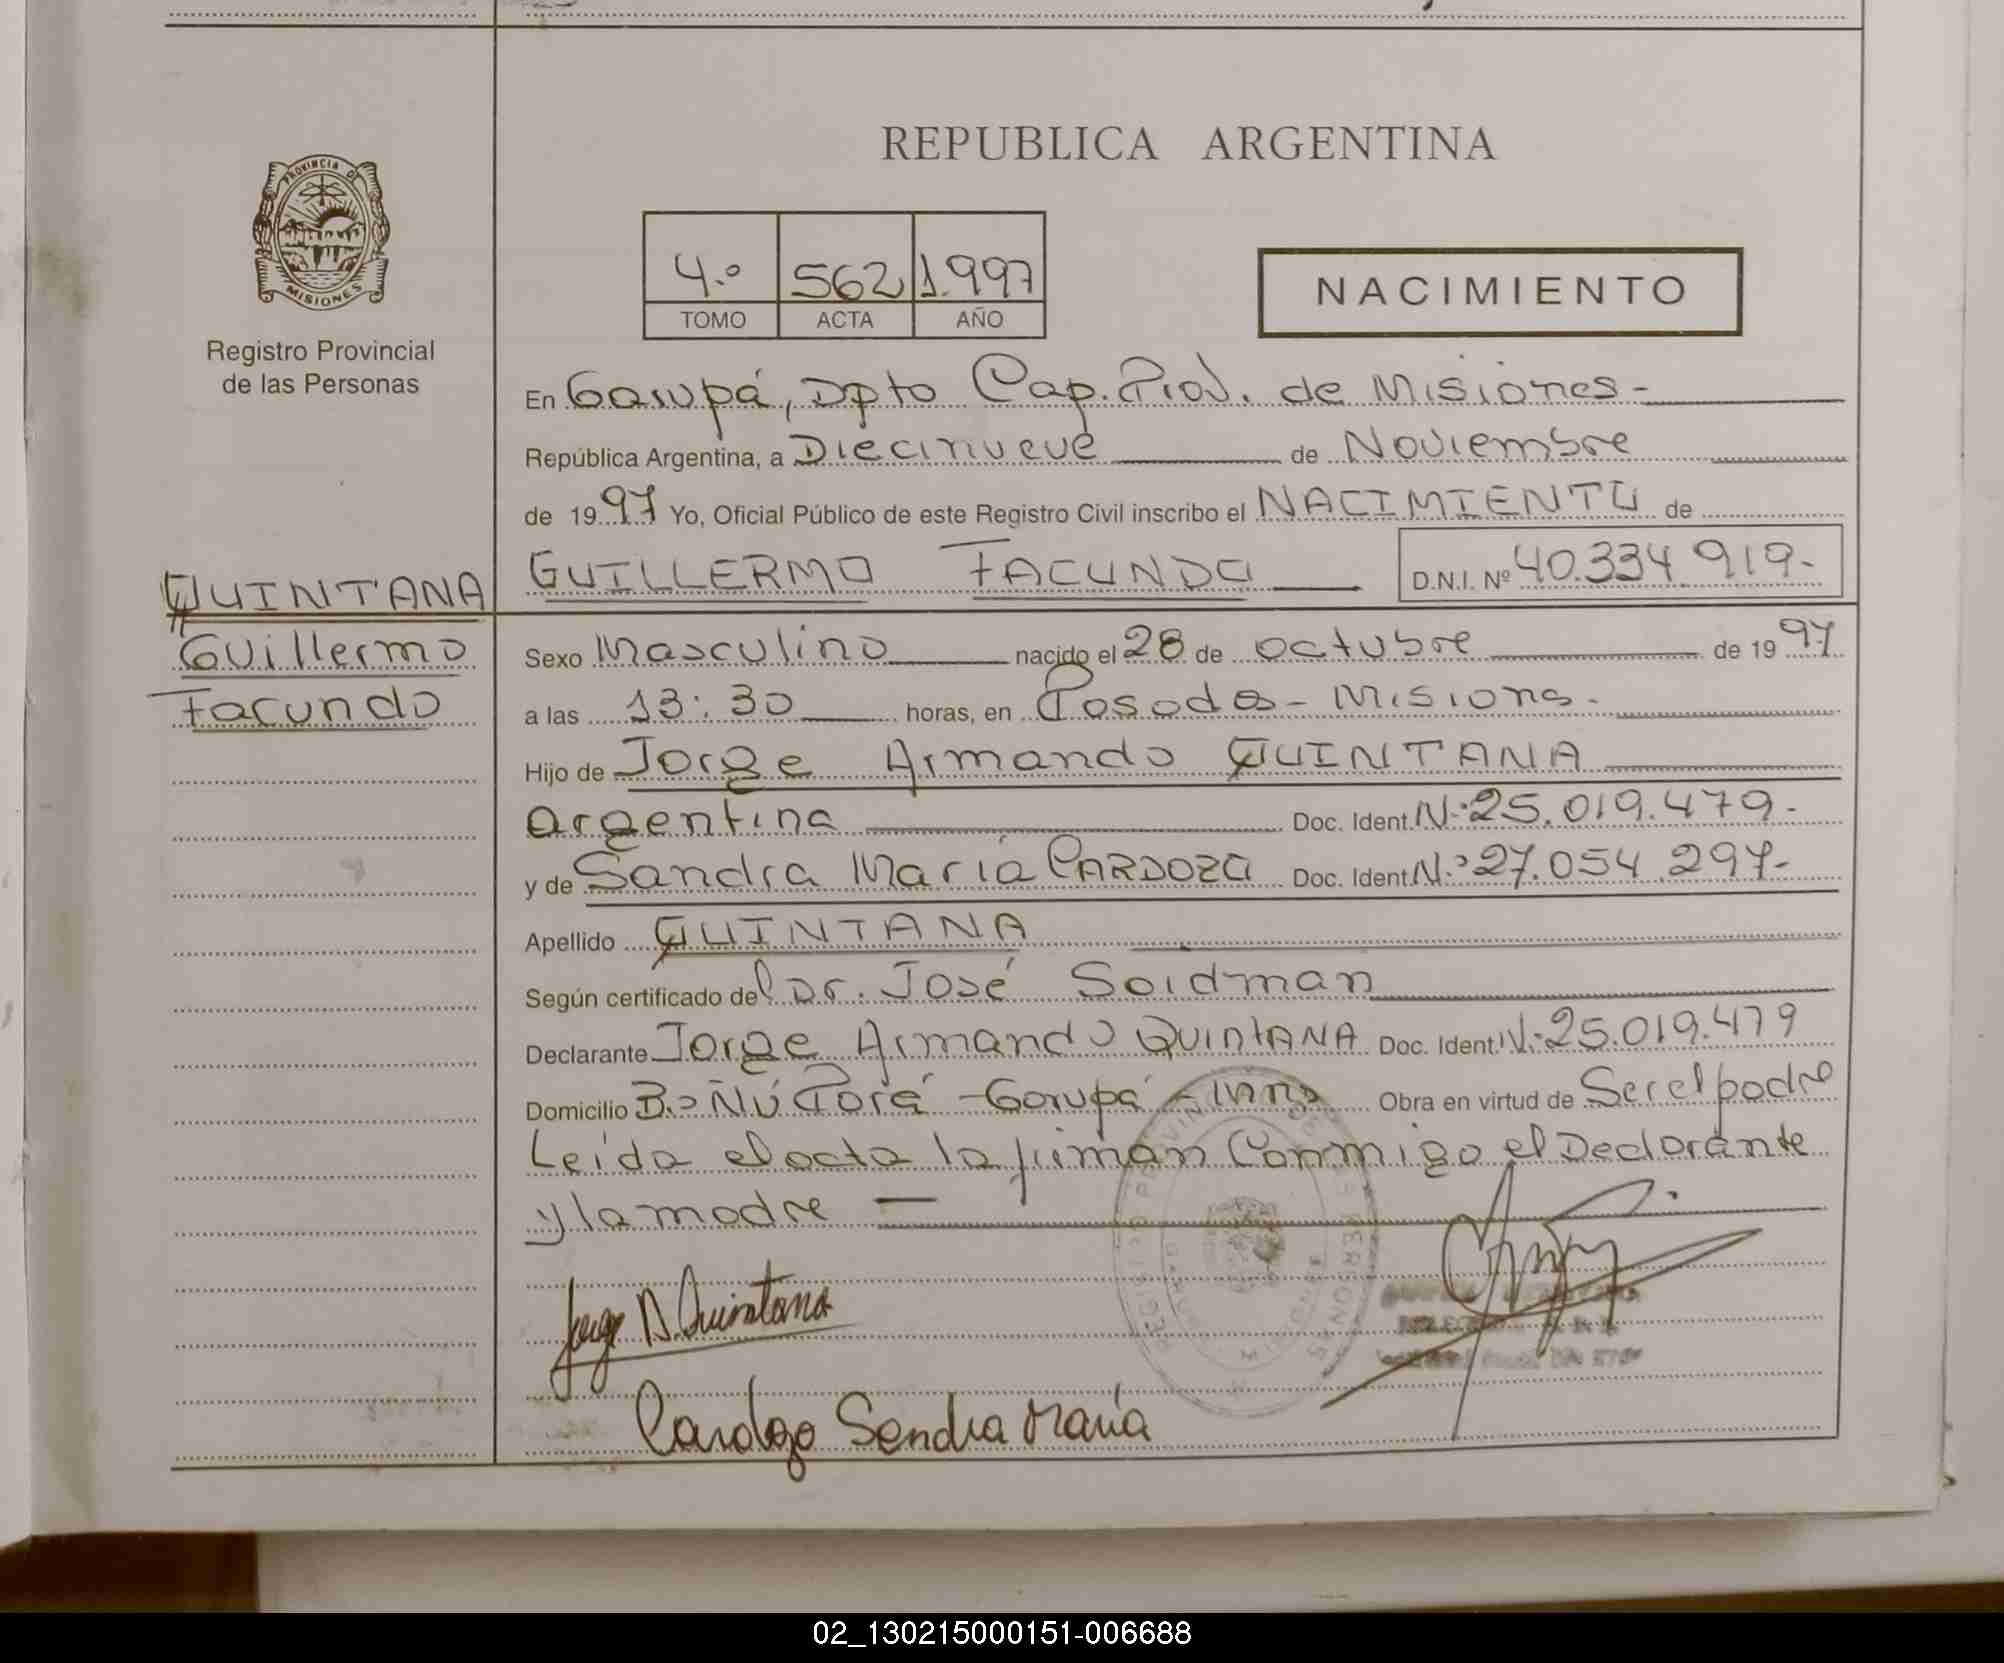 REPUBLICA ARGENTINA
PROVINCIA DE
MISIONES
Registro Provincial
de las Personas
4.º 562 1.997
TOMO ACTA AÑO
NACIMIENTO
En Garupá, Dpto Cap. Prov. de Misiones-
República Argentina, a Diecinueve de Noviembre
de 1997 Yo, Oficial Público de este Registro Civil inscribo el NACIMIENTO de
GUILLERMO FACUNDO D.N.I. Nº 40.334.919-
QUINTANA
Guillermo
Facundo
Sexo Masculino nacido el 28 de octubre de 1997
a las 13:30 horas, en Posadas - Misiones.
Hijo de Jorge Armando QUINTANA
argentina Doc. Ident. Nº 25.019.479-
y de Sandra María CARDOZO Doc. Ident. Nº 27.054.297-
Apellido QUINTANA
Según certificado del Dr. José Soidman
Declarante Jorge Armando QUINTANA Doc. Ident. Nº 25.019.479
Domicilio Bº Ñú Porá - Garupá - Mnes Obra en virtud de Ser el padre
Leida el acta la firman Conmigo el Declarante
y la madre
Jorge A. Quintana
Cardozo Sandra María
02_130215000151-006688